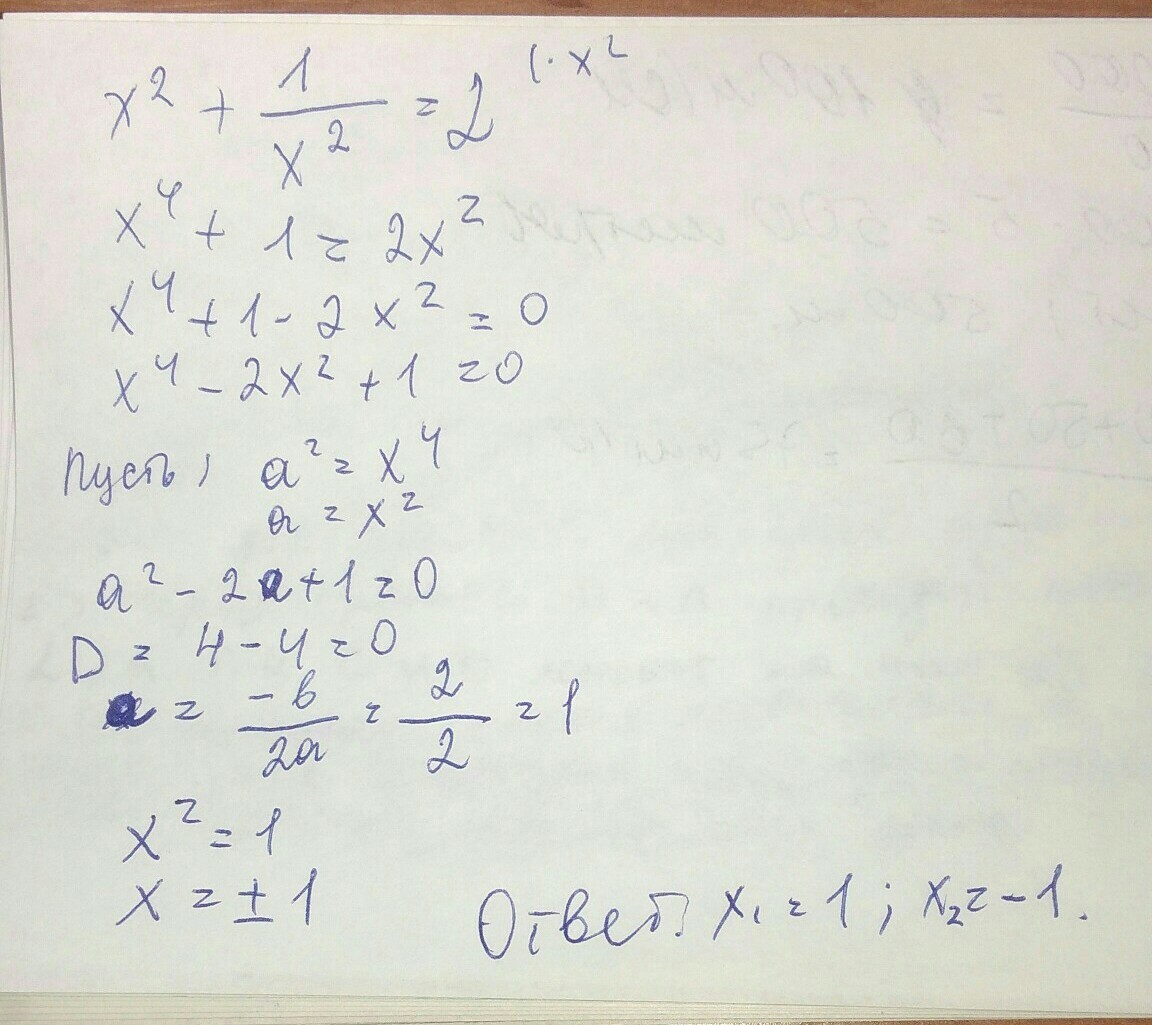 x² + 1/x² = 2 |· x²
x⁴ + 1 = 2x²
x⁴ + 1 - 2x² = 0
x⁴ - 2x² + 1 = 0
Пусть, a² = x⁴
a = x²
a² - 2a + 1 = 0
D = 4 - 4 = 0
a = -b/2a = 2/2 = 1
x² = 1
x = ± 1
Ответ: x₁ = 1 ; x₂ = -1.